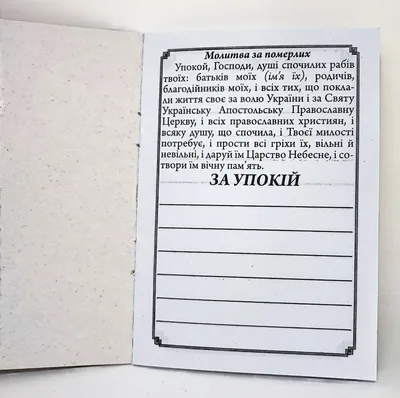 Молитва за померлих
Упокой, Господи, душі спочилих рабів
твоїх: батьків моїх (ім'я їх), родичів,
благодійників моїх, і всіх тих, що покла-
ли життя своє за волю України і за Святу
Українську Апостольську Православну
Церкву, і всіх православних християн, і
всяку душу, що спочила, і Твоєї милості
потребує, і прости всі гріхи їх, вільні й
невільні, і даруй їм Царство Небесне, і со-
твори їм вічну пам'ять.
ЗА УПОКІЙ